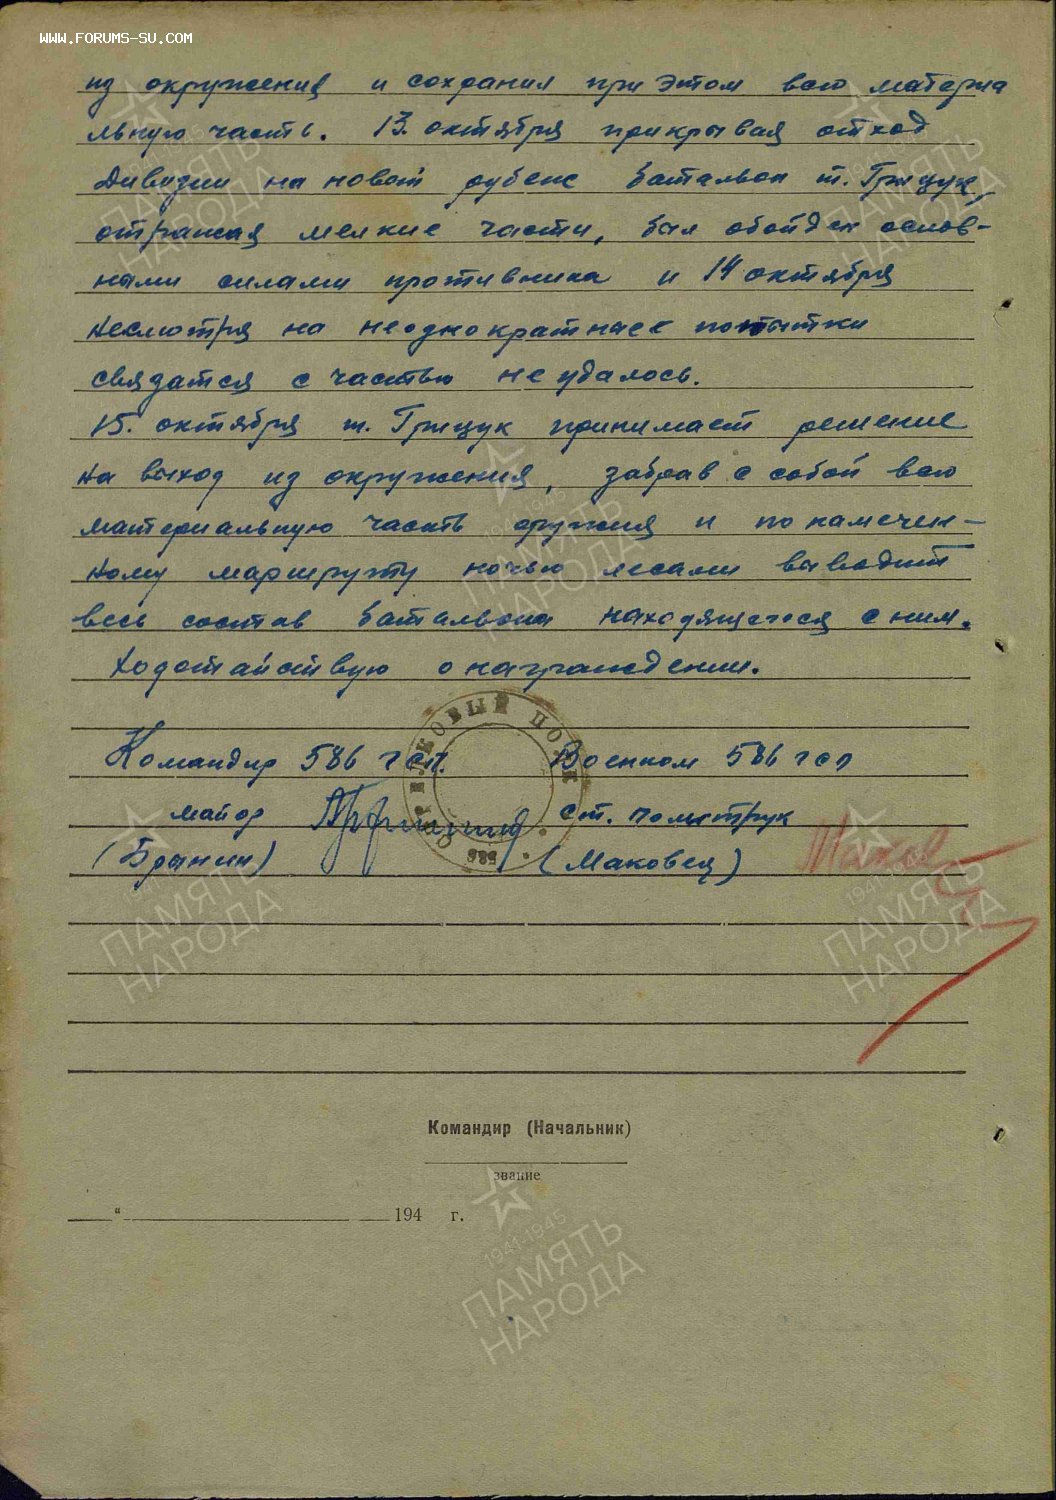 WWW.FORUMS-SU.COM
из окружения и сохранил при этом всю материа
льную часть. 13. октября прикрывая отход
Дивизии на новой рубеж батальон т. Грищук,
отражая мелкие части, был обойден основ-
ными силами противника и 14 октября
несмотря на неоднократные попытки
связатся с частью не удалось.
15. октября т. Грищук принимает решение
на выход из окружения, забрав с собой всю
материальную часть оружия и по намечен-
ному маршруту ночью лесами выводит
весь состав батальона находящегося с ним.
Ходотайствую о награждении.
СТРЕЛКОВЫЙ ПОЛК
586
Командир 586 г сп. Военком 586 г сп
майор ст. политрук
(Брынин) (Маковец) Маков
Командир (Начальник)
звание
" 194 г.
1941-1945
ПАМЯТЬ
НАРОДА